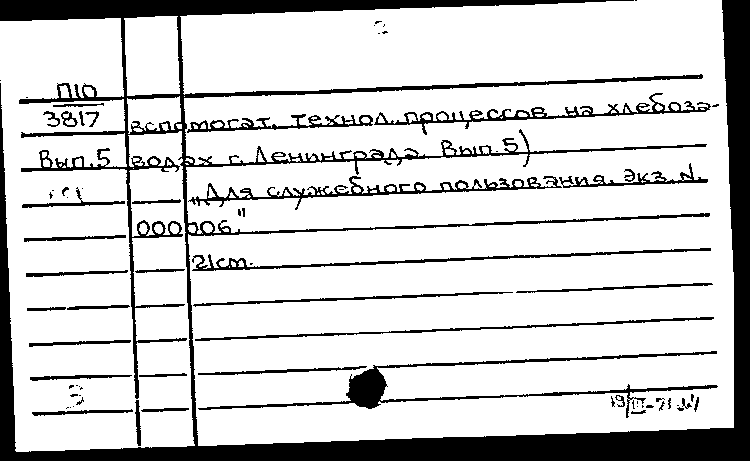 2
П10
3817
вспомогат. технол. процессов на хлебоза-
Вып.5 водах г. Ленинграда. Вып.5)
„Для служебного пользования. Экз. N.
000006."
21 см.
3
19/III-71